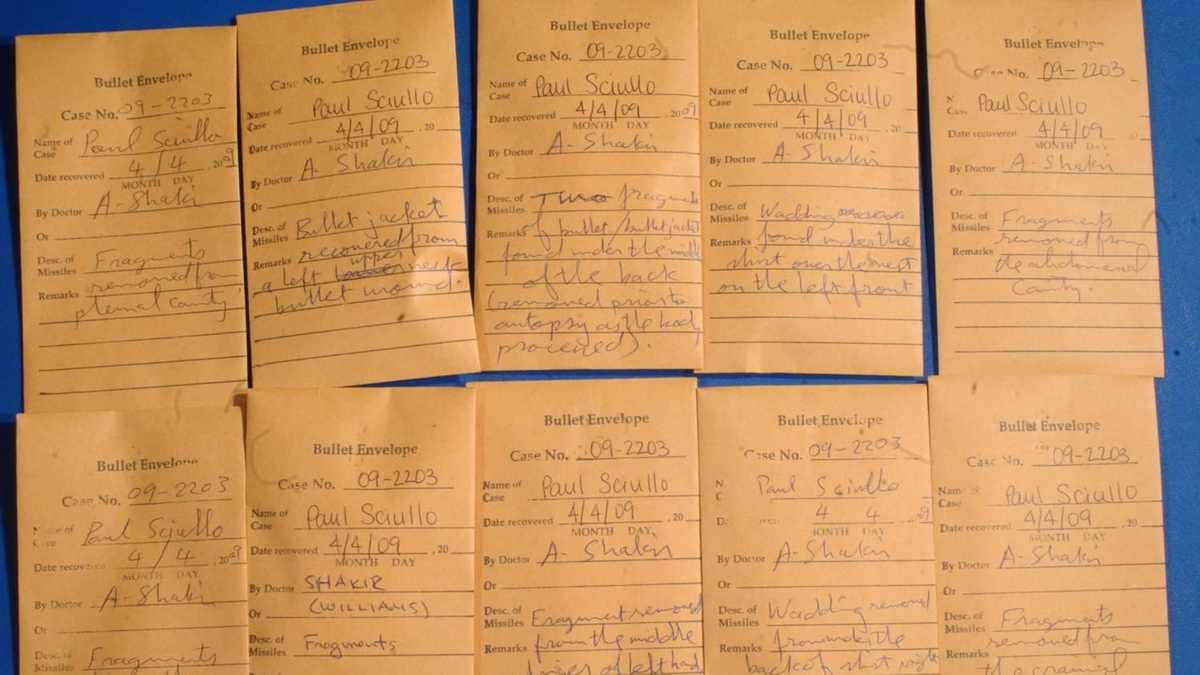 Bullet Envelope
Case No. 09-2203
Name of Case Paul Sciullo
Date recovered 4/4 2009
MONTH DAY
By Doctor A-Shakir
Or
Desc. of Missiles Fragments
Remarks removed from
pleural cavity
Bullet Envelope
Case No. 09-2203
Name of Case Paul Sciullo
Date recovered 4/4/09, 20
MONTH DAY
By Doctor A. Shakir
Or
Desc. of Missiles Bullet jacket
recovered from
Remarks a left upper neck
bullet wound.
Bullet Envelope
Case No. 09-2203
Name of Case Paul Sciullo
Date recovered 4/4/09, 2009
MONTH DAY
By Doctor A-Shakir
Or
Desc. of Missiles Two fragments
Remarks of bullet/bullet jacket
found under the middle
of the back
(removed prior to
autopsy as the body
processed).
Bullet Envelope
Case No. 09-2203
Name of Case Paul Sciullo
Date recovered 4/4/09, 20
MONTH DAY
By Doctor A-Shakir
Or
Desc. of Missiles Wadding
Remarks found under the
shirt over the
on the left front
Bullet Envelope
No. 09-2203
Case Paul Sciullo
Date recovered 4/4/09, 20
MONTH DAY
By Doctor A-Shakir
Or
Desc. of Missiles Fragments
Remarks removed from
the abdominal
cavity.
Bullet Envelope
Case No. 09-2203
Name of Case Paul Sciullo
Date recovered 4/4 2009
MONTH DAY
By Doctor A-Shakir
Or
Desc. of Missiles Fragments
Bullet Envelope
Case No. 09-2203
Name of Case Paul Sciullo
Date recovered 4/4/09, 20
MONTH DAY
By Doctor SHAKIR
Or (WILLIAMS)
Desc. of Missiles Fragments
Bullet Envelope
Case No. 09-2203
Name of Case Paul Sciullo
Date recovered 4/4/09, 20
MONTH DAY
By Doctor A-Shakir
Or
Desc. of Missiles Fragment removed
Remarks from the middle
finger of left hand
Bullet Envelope
Case No. 09-2203
Paul Sciullo
4 4 09
MONTH DAY
By Doctor A-Shakir
Or
Desc. of Missiles Wadding removed
Remarks from under the
back of shirt right
Bullet Envelope
Case No. 09-2203
Name of Case Paul Sciullo
Date recovered 4/4/09, 20
MONTH DAY
By Doctor A-Shakir
Or
Desc. of Missiles Fragments
removed from
Remarks the cranial